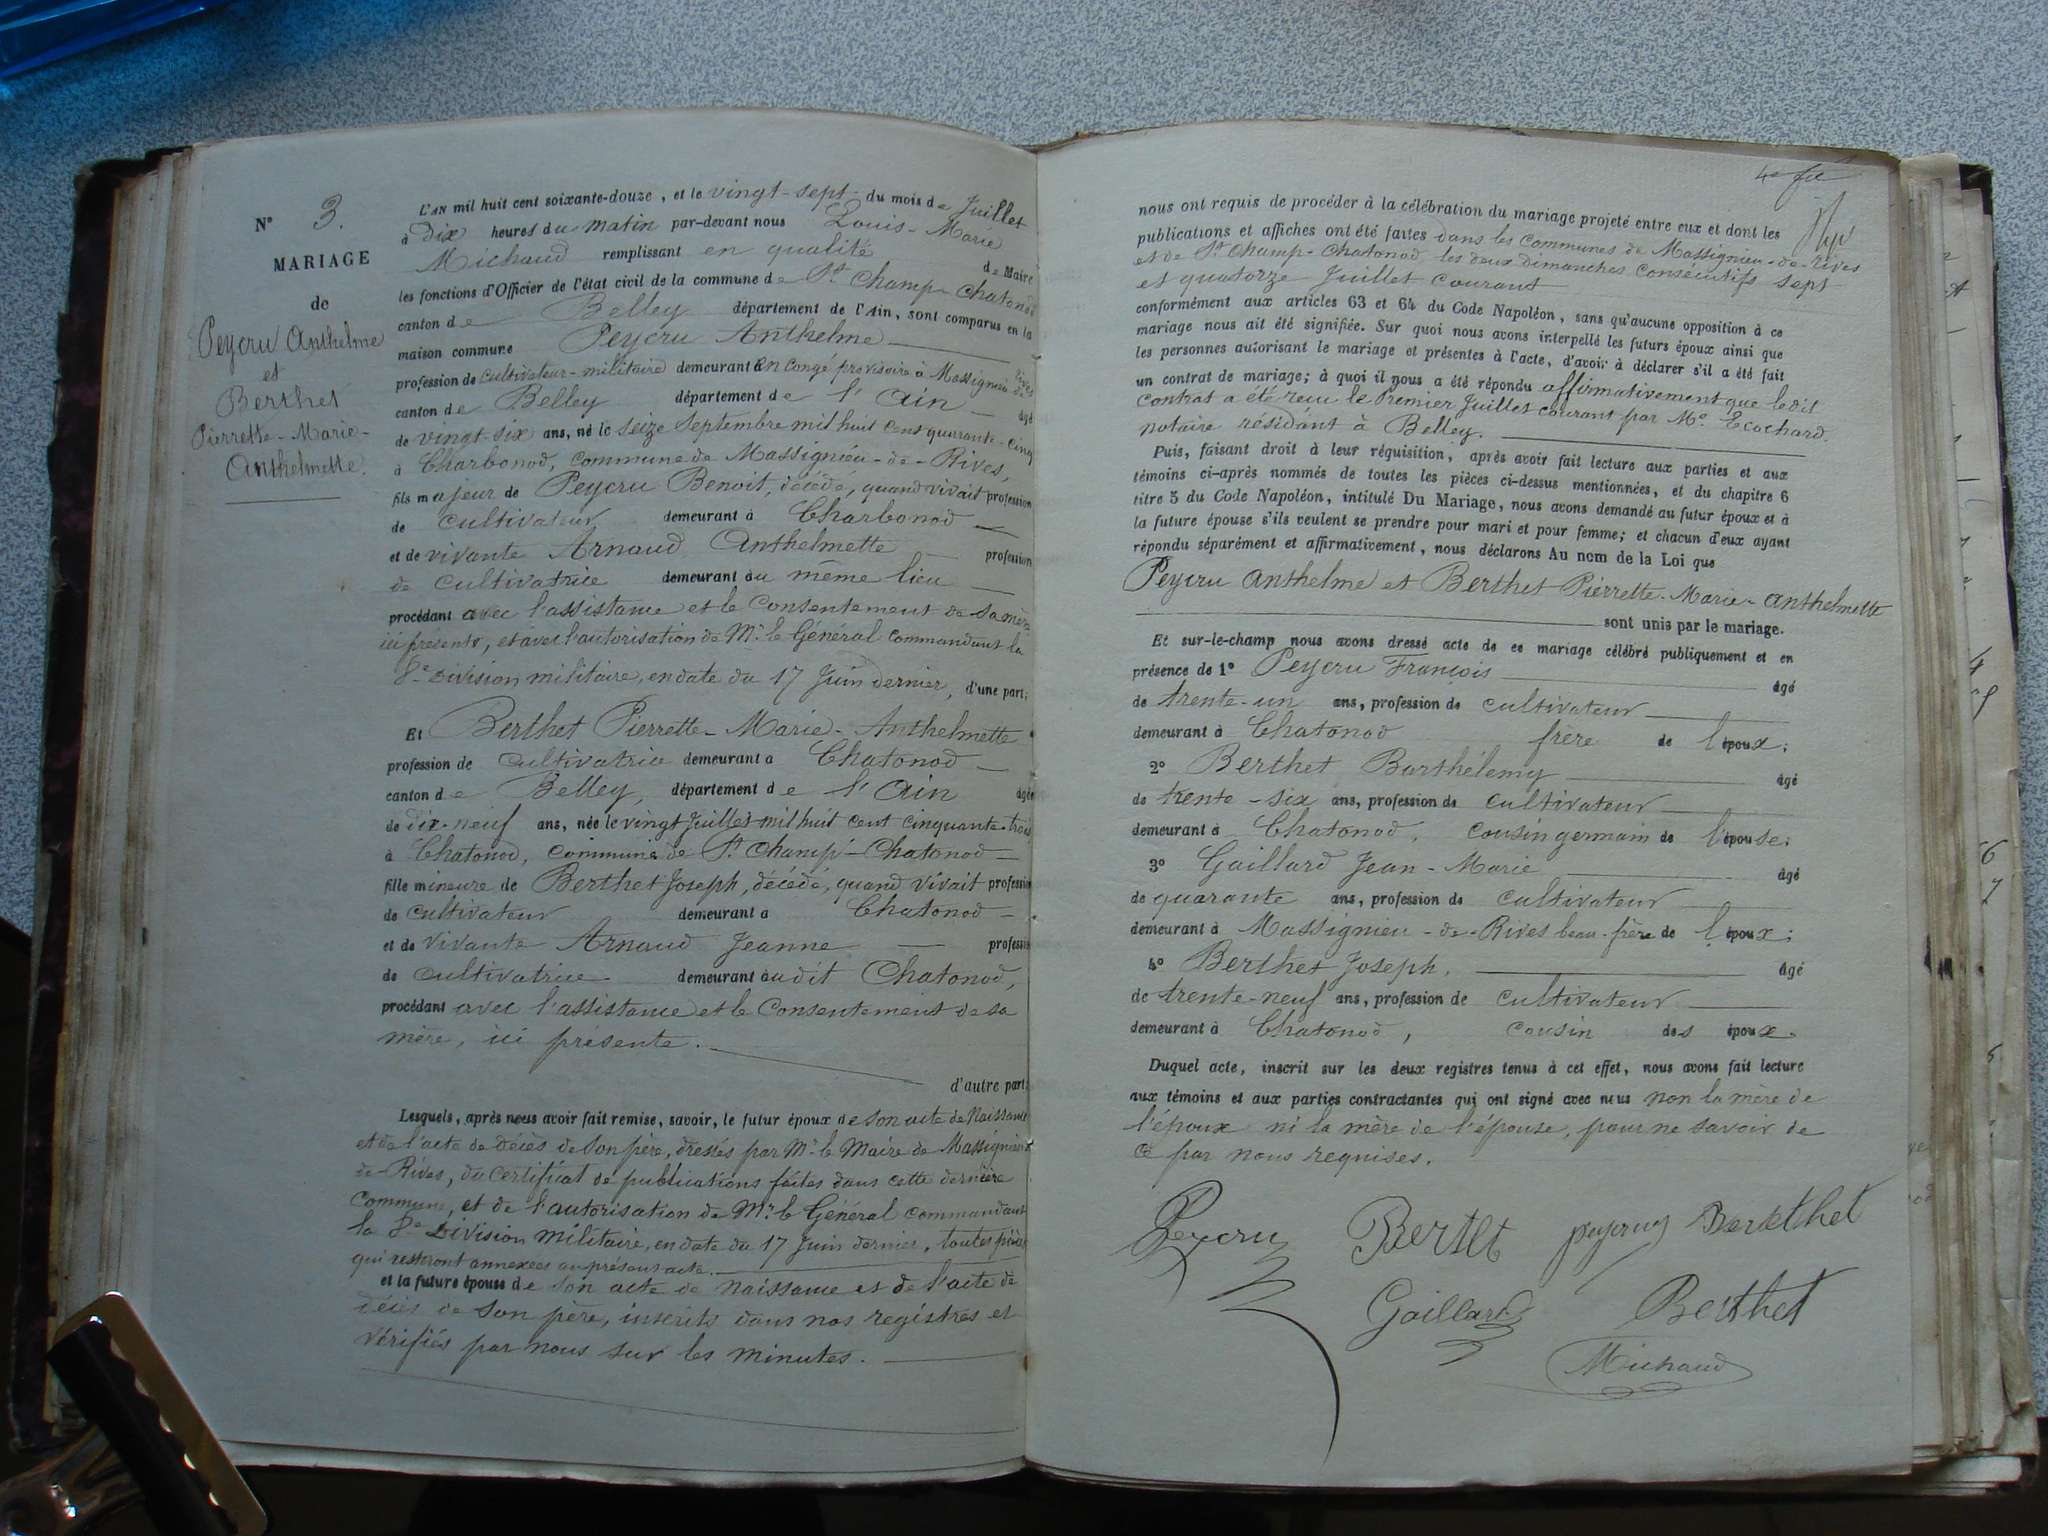 N° 3.
MARIAGE
de
Peycru Anthelme
et
Berthet
Pierrette-Marie-
Anthelmette.
L'AN mil huit cent soixante-douze, et le vingt-sept du mois de Juillet
à dix heures du matin par-devant nous Louis-Marie
Michaud remplissant en qualité de Maire
les fonctions d'Officier de l'état civil de la commune de St Champ-Chatonod
canton de Belley département de l'Ain, sont comparus en la
maison commune Peycru Anthelme
profession de cultivateur-militaire demeurant en congé provisoire à Massignieu de Rives
canton de Belley département de l'Ain âgé
de vingt-six ans, né le seize Septembre mil huit cent quarante-cinq
à Charbonod, commune de Massignieu-de-Rives,
fils majeur de Peycru Benoit, décédé, quand vivait profession
de cultivateur demeurant à Charbonod
et de vivante Arnaud Anthelmette profession
de cultivatrice demeurant au même lieu
procédant avec l'assistance et le consentement de sa mère
ici présente, et avec l'autorisation de Mr. le Général commandant la
8e Division militaire, en date du 17 Juin dernier, d'une part;
Et Berthet Pierrette-Marie-Anthelmette
profession de cultivatrice demeurant à Chatonod
canton de Belley, département de l'Ain âgée
de dix-neuf ans, née le vingt Juillet mil huit cent cinquante-trois
à Chatonod, commune de St. Champ-Chatonod
fille mineure de Berthet Joseph, décédé, quand vivait profession
de cultivateur demeurant à Chatonod
et de vivante Arnaud Jeanne profession
de cultivatrice demeurant audit Chatonod,
procédant avec l'assistance et le consentement de sa
mère, ici présente.
d'autre part;
Lesquels, après nous avoir fait remise, savoir, le futur époux de son acte de Naissance
et de l'acte de décès de son père, dressés par Mr. le Maire de Massignieu
de-Rives, du certificat de publications faites dans cette dernière
Commune, et de l'autorisation de Mr. le Général commandant
la 8e Division militaire, en date du 17 Juin dernier, toutes pièces
qui resteront annexées au présent acte.
et la future épouse de son acte de naissance et de l'acte de
décès de son père, inscrits dans nos registres et
vérifiés par nous sur les minutes.
nous ont requis de procéder à la célébration du mariage projeté entre eux et dont les
publications et affiches ont été faites dans les communes de Massignieu-de-Rives
et de St. Champ-Chatonod les deux dimanches consécutifs sept
et quatorze Juillet courant
conformément aux articles 63 et 64 du Code Napoléon, sans qu'aucune opposition à ce
mariage nous ait été signifiée. Sur quoi nous avons interpellé les futurs époux ainsi que
les personnes autorisant le mariage et présentes à l'acte, d'avoir à déclarer s'il a été fait
un contrat de mariage; à quoi il nous a été répondu affirmativement que ledit
contrat a été reçu le Premier Juillet courant par Me. Ecochard.
notaire résidant à Belley.
Puis, faisant droit à leur réquisition, après avoir fait lecture aux parties et aux
témoins ci-après nommés de toutes les pièces ci-dessus mentionnées, et du chapitre 6
titre 5 du Code Napoléon, intitulé Du Mariage, nous avons demandé au futur époux et à
la future épouse s'ils veulent se prendre pour mari et pour femme; et chacun d'eux ayant
répondu séparément et affirmativement, nous déclarons Au nom de la Loi que
Peycru Anthelme et Berthet Pierrette-Marie-Anthelmette
sont unis par le mariage.
Et sur-le-champ nous avons dressé acte de ce mariage célébré publiquement et en
présence de 1° Peycru François âgé
de trente-un ans, profession de cultivateur
demeurant à Chatonod frère de l'époux;
2° Berthet Barthélemy âgé
de trente-six ans, profession de cultivateur
demeurant à Chatonod, cousin germain de l'épouse;
3° Gaillard Jean-Marie âgé
de quarante ans, profession de cultivateur
demeurant à Massignieu-de-Rives beau-frère de l'époux;
4° Berthet Joseph, âgé
de trente-neuf ans, profession de cultivateur
demeurant à Chatonod, cousin des époux.
Duquel acte, inscrit sur les deux registres tenus à cet effet, nous avons fait lecture
aux témoins et aux parties contractantes qui ont signé avec nous non la mère de
l'époux ni la mère de l'épouse, pour ne savoir de
ce par nous requises.
Peycru Bertet peycru Berthet
Gaillard Berthet
Michaud